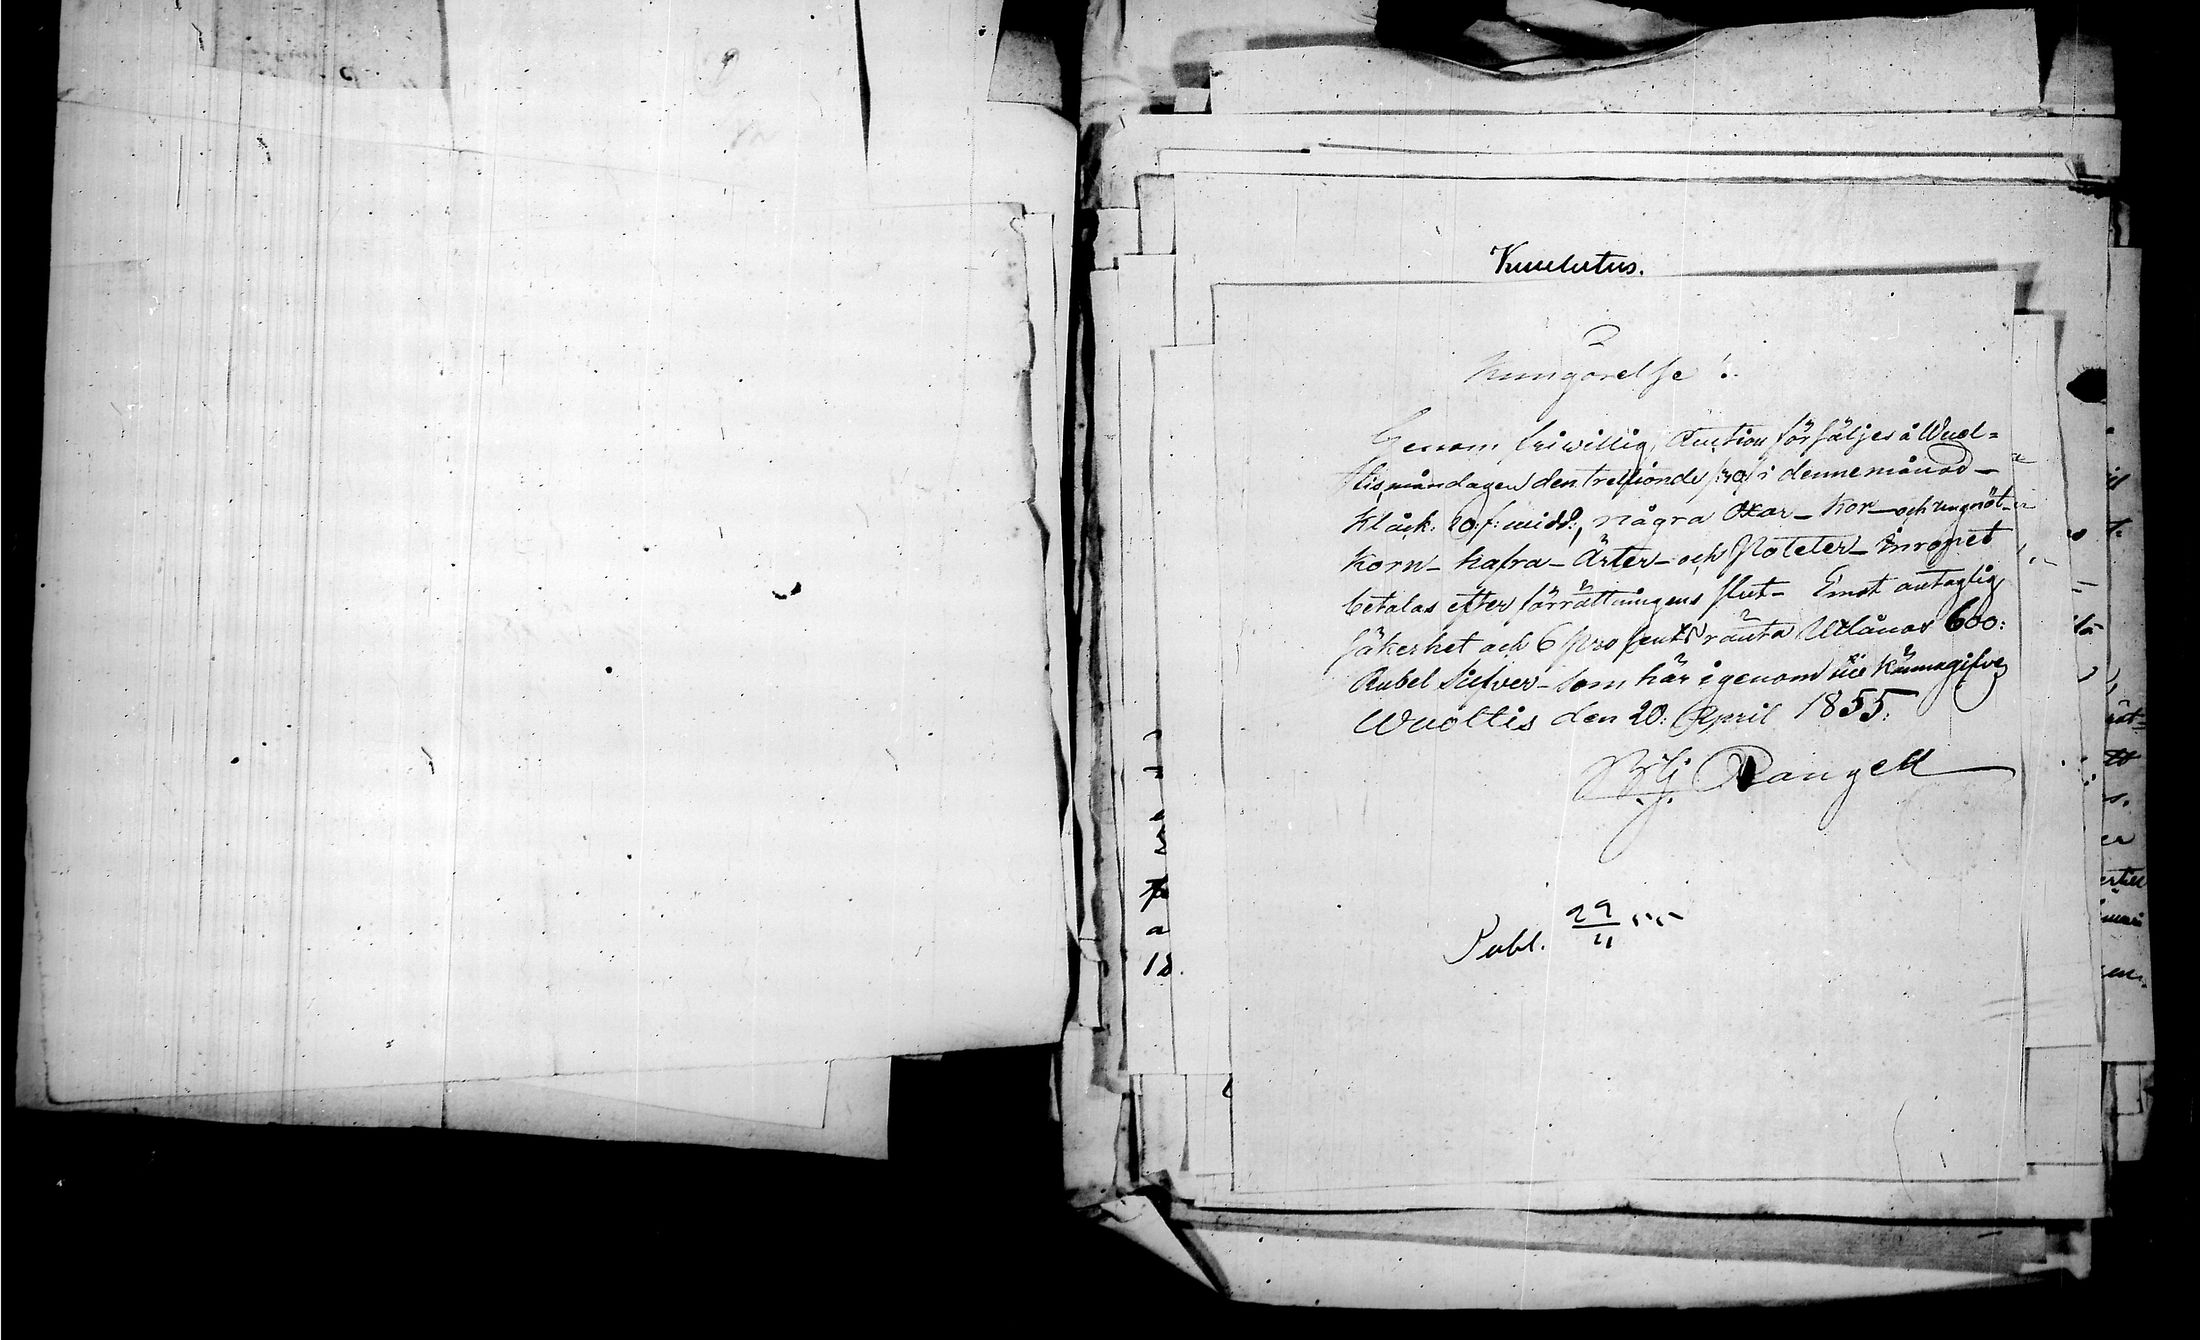 Kuulutus.
Kungörelse !
Genom friwillig Auction försäljes å Wuol=
tis måndagen den trettionde /:30/: i denne månad –
Klåck: 10 f: midd:, några Oxar – Kor – och ungnöt –
Korn – hafra – Ärter – och Poteter – Inropet
betalas efter förrättningens slut – Emot antaglig
säkerhet och 6 Prosents ränta Utlånas 600:
Rubel Silfver – som här igenom til känna gifves
Wuoltis den 20: April 1855.
Rangell
Publ. 22/4 55